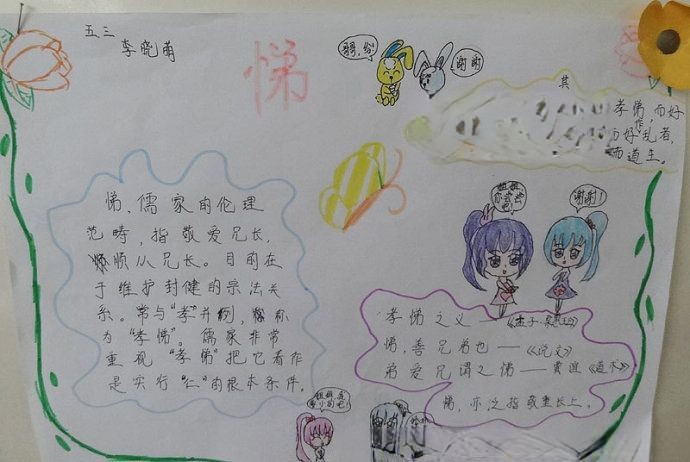 五三
李晓萌
悌
哥哥,给!
谢谢
其
孝悌,而好
作
好乱者,
而道生。
悌,儒家的伦理
范畴,指敬爱兄长,
顺从兄长。目的在
于维护封健的宗法关
系。常与“孝”并列,称
为“孝悌”。儒家非常
重视“孝悌”把它看作
是实行“仁”的根本条件。
姐姐
你尝尝
吧!
谢谢!
孝悌之义——《孟子·
悌,善兄弟也——《说文》
弟爱兄谓之悌——贾谊《道术》
悌,亦泛指敬重长上。
姐姐